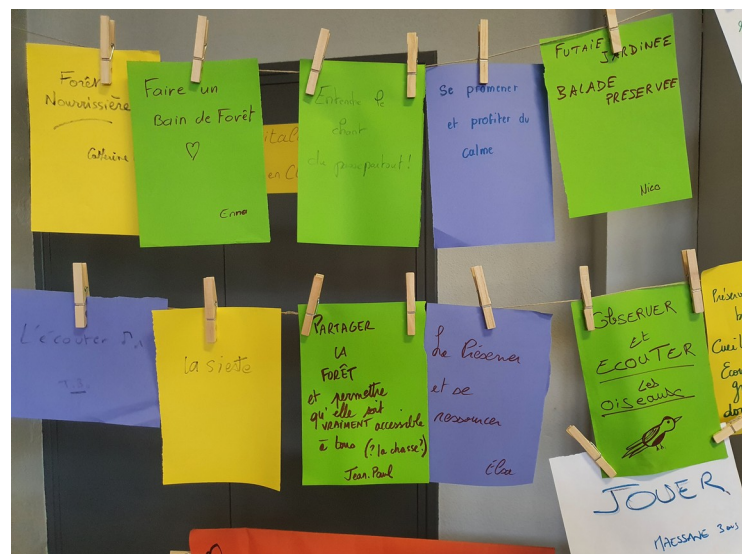 Forêt
Nourrissière
Catherine
Faire un
Bain de Forêt
♡
Enna
ital
en Cl
Entendre le
chant
du passepartout!
Se promener
et profiter du
calme
FUTAIE JARDINEE
BALADE PRESERVEE
Nico
L'écouter
La sieste
PARTAGER
LA
FORÊT
et permettre
qu'elle soit
VRAIMENT accessible
à tous (? la chasse?)
Jean-Paul
La Préserver
et se
ressourcer
Élsa
OBSERVER
et
ECOUTER
les
Oiseaux
Préserv
Cueil
Ecou
JOUER
MAESSANE 3 ans